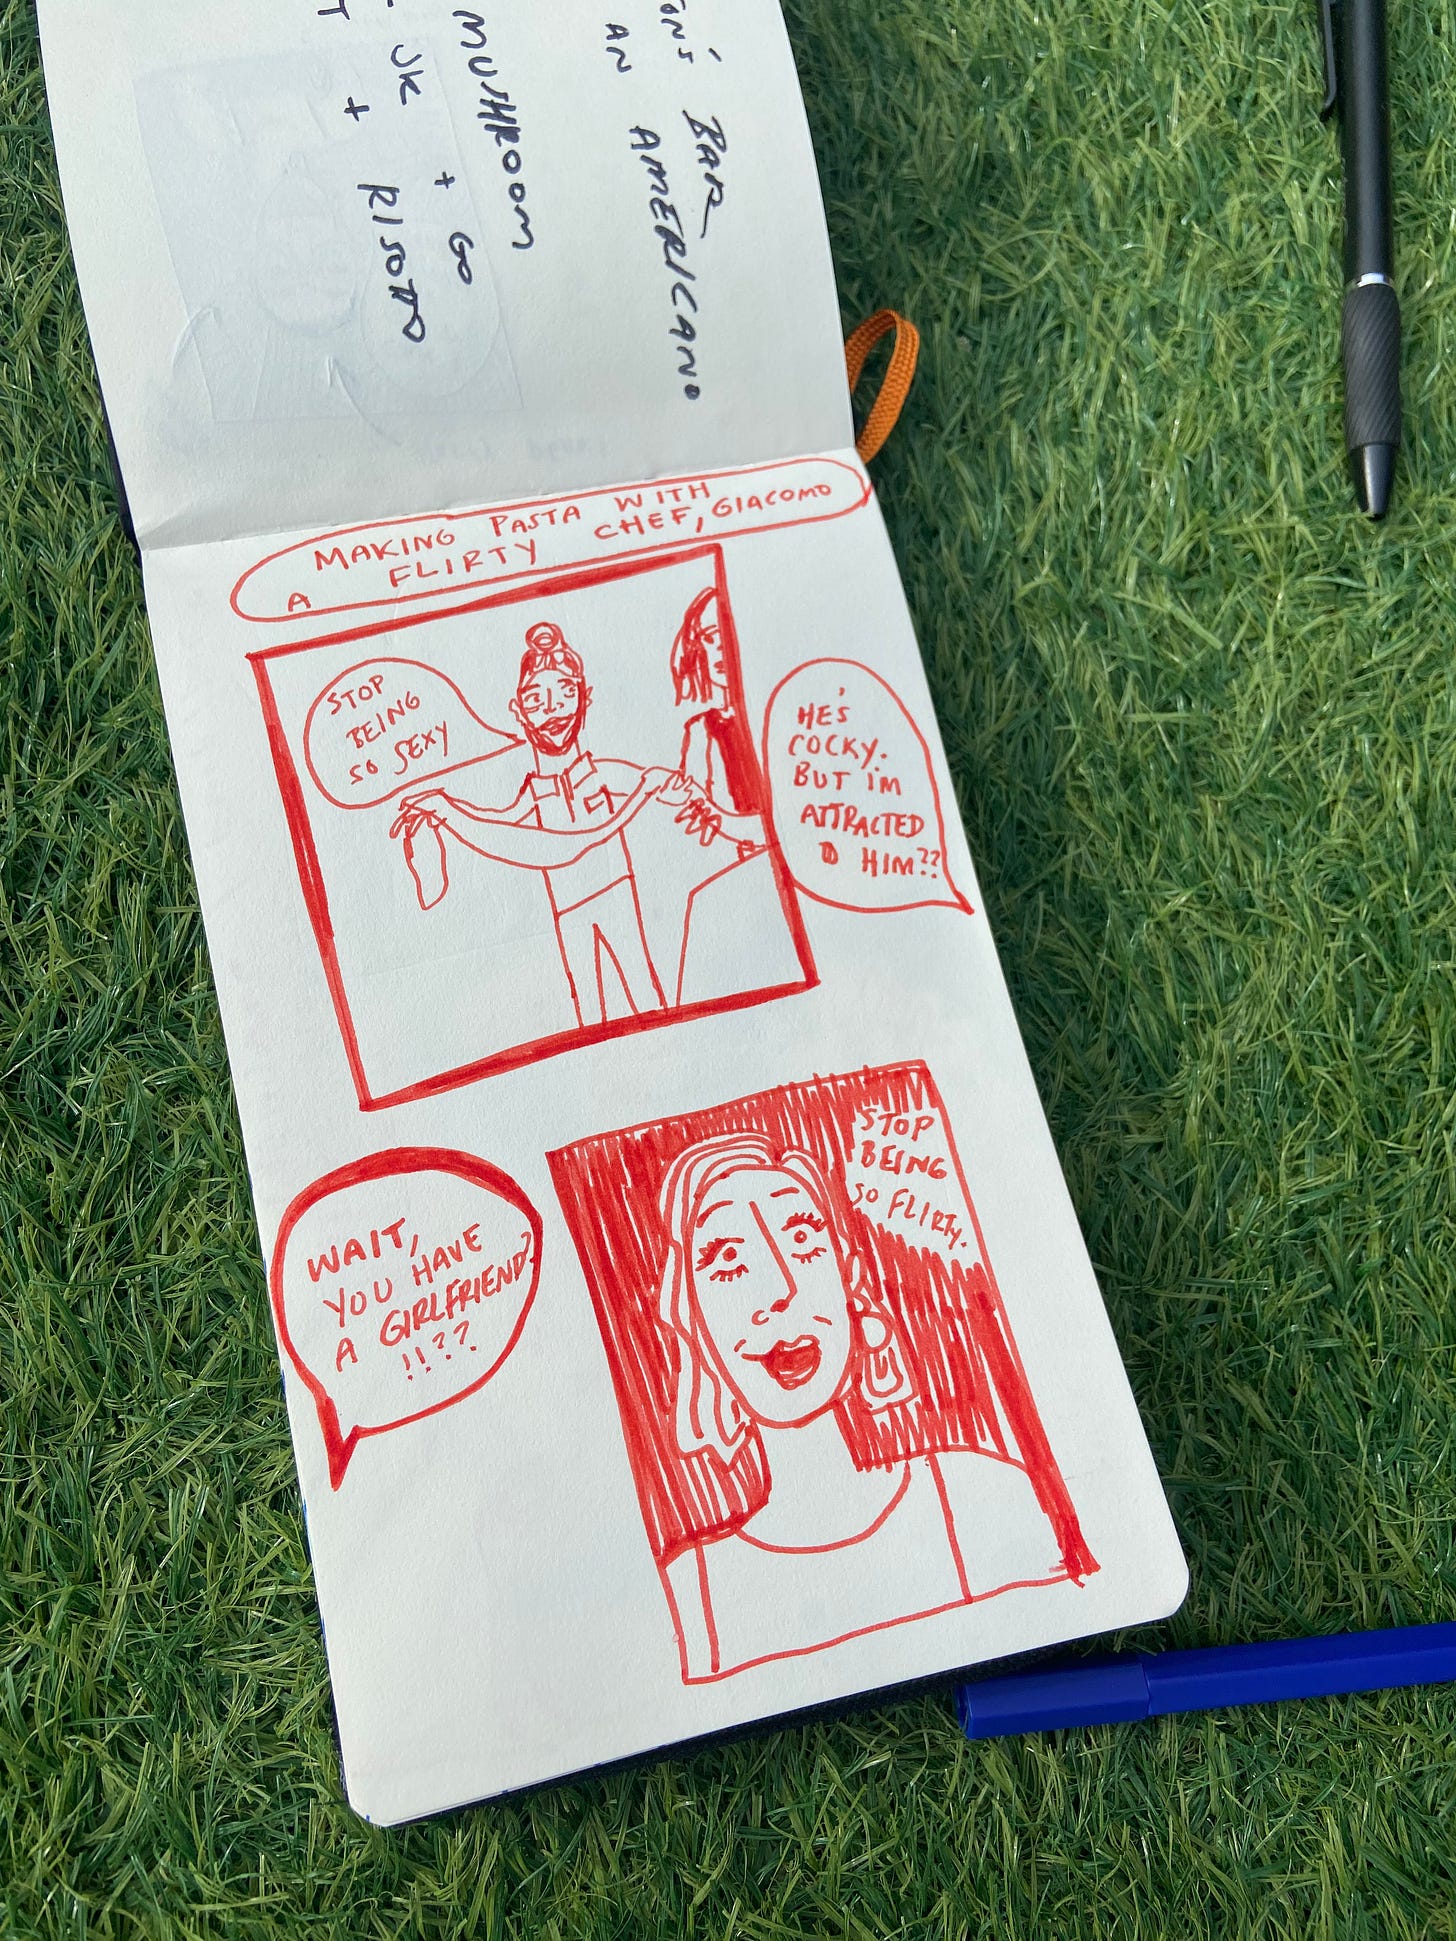 BAR
AN AMERICANO
MUSHROOM
+ GO
+ RISOTTO
MAKING PASTA WITH
A FLIRTY CHEF, GIACOMO
STOP
BEING
SO SEXY
HE'S
COCKY.
BUT I'M
ATTRACTED
TO HIM??
WAIT,
YOU HAVE
A GIRLFRIEND?
!!??
STOP
BEING
SO FLIRTY.